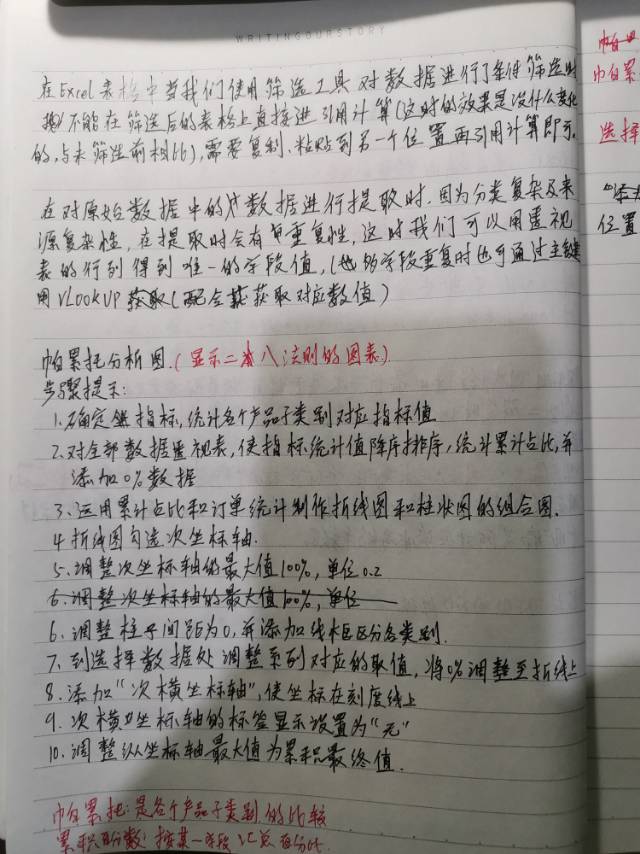 WRITINGOURSTORY
在Excel表格中当我们使用筛选工具对数据进行了条件筛选时
不能在筛选后的表格上直接进引用计算(这时的效果是没什么变化
的,与未筛选前相比),需要复制、粘贴到另一个位置再引用计算即可。
在对原始数据中的数据进行提取时.因为分类复杂及来
源复杂性,在提取时会有重复性,这时我们可以用透视
表的行列得到唯一的字段值,(字段重复时也可通过主键
用VLOOKUP获取(配合获取对应数值)
帕累托分析图.(显示二八法则的图表)
步骤提示:
1.确定指标,统计各个产品子类别对应指标值
2.对全部数据透视表,使指标统计值降序排序,统计累计占比,并
添加0%数据
3.运用累计占比和订单统计制作折线图和柱状图的组合图.
4.折线图勾选次坐标轴.
5.调整次坐标轴的最大值100%,单位0.2
6.调整次坐标轴的最大值100%,单位
6.调整柱子间距为0,并添加线框区分各类别.
7.到选择数据处调整系列对应的取值,将0%调整至折线上
8.添加“次横坐标轴”,使坐标在刻度线上
9.次横坐标轴的标签显示设置为“无”
10.调整纵坐标轴最大值为累积最终值.
帕累托:是各个产品子类别的比较
累积百分数:按某一字段汇总百分比.
帕累
选择
位置